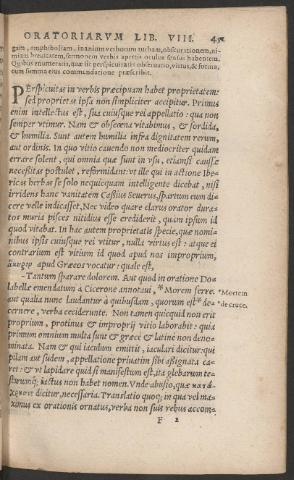 ORATORIARVM LIB. VIII. 45
gum, amphiboliam, inanium verborum turbam, obscurationem, nimiam brevitatem, sermonem verbis apertis ocultos sensus habentem.
Quibus enumeratis, quae sit perspicuitatis observatio, virtus, & forma,
cum summa eius commendatione praescribit.
PErspicuitas in verbis præcipuam habet proprietatem:
sed proprietas ipsa non simpliciter accipitur. Primus
enim intellectus est, sua cuiusque rei appellatio: qua non
semper vtimur. Nam & obscoena vitabimus, & sordida,
& humilia. Sunt autem humilia infra dignitatem rerum,
aut ordinis. In quo vitio cauendo non mediocriter quidam
errare solent, qui omnia quæ sunt in vsu, etiamsi causæ
necessitas postulet, reformidant: vt ille qui in actione Ibericas
herbas se solo nequicquam intelligente dicebat, nisi
irridens hanc vanitatem Cassius Seuerus, spartum eum dicere
velle indicasset. Nec video quare clarus orator duratos
muria pisces nitidius esse crediderit, quàm ipsum id
quod vitabat. In hac autem proprietatis specie, quæ nominibus
ipsis cuiusque rei vtitur, nulla virtus est: at quæ ei
contrarium est vitium id quod apud nos improprium,
apud Græcos vocatur: quale est,
Tantum sperare dolorem. Aut quod in oratione Dolabellæ
emendatum à Cicerone annotaui, * Mortem ferre.
aut qualia nunc laudantur à quibusdam, quorum est * decernere,
verba ceciderunt. Non tamen quicquid non erit
proprium, protinus & improprij vitio laborabit: quia
primum omnium multa sunt & græcè & latinè non denominata.
Nam & qui iaculum emittit, iaculari dicitur: qui
pilam aut sudem, appellatione priuatim sibi assignata caret:
& vt lapidare quid sit manifestum est, ita glebarum testarumque
iactus non habet nomen. Vnde abusio, quæ κατάχρησις
dicitur, necessaria. Translatio quoque, in qua vel maximus
ex orationis ornatus, verba non suis rebus accom-
* Mortem
* de cruce.
F 2